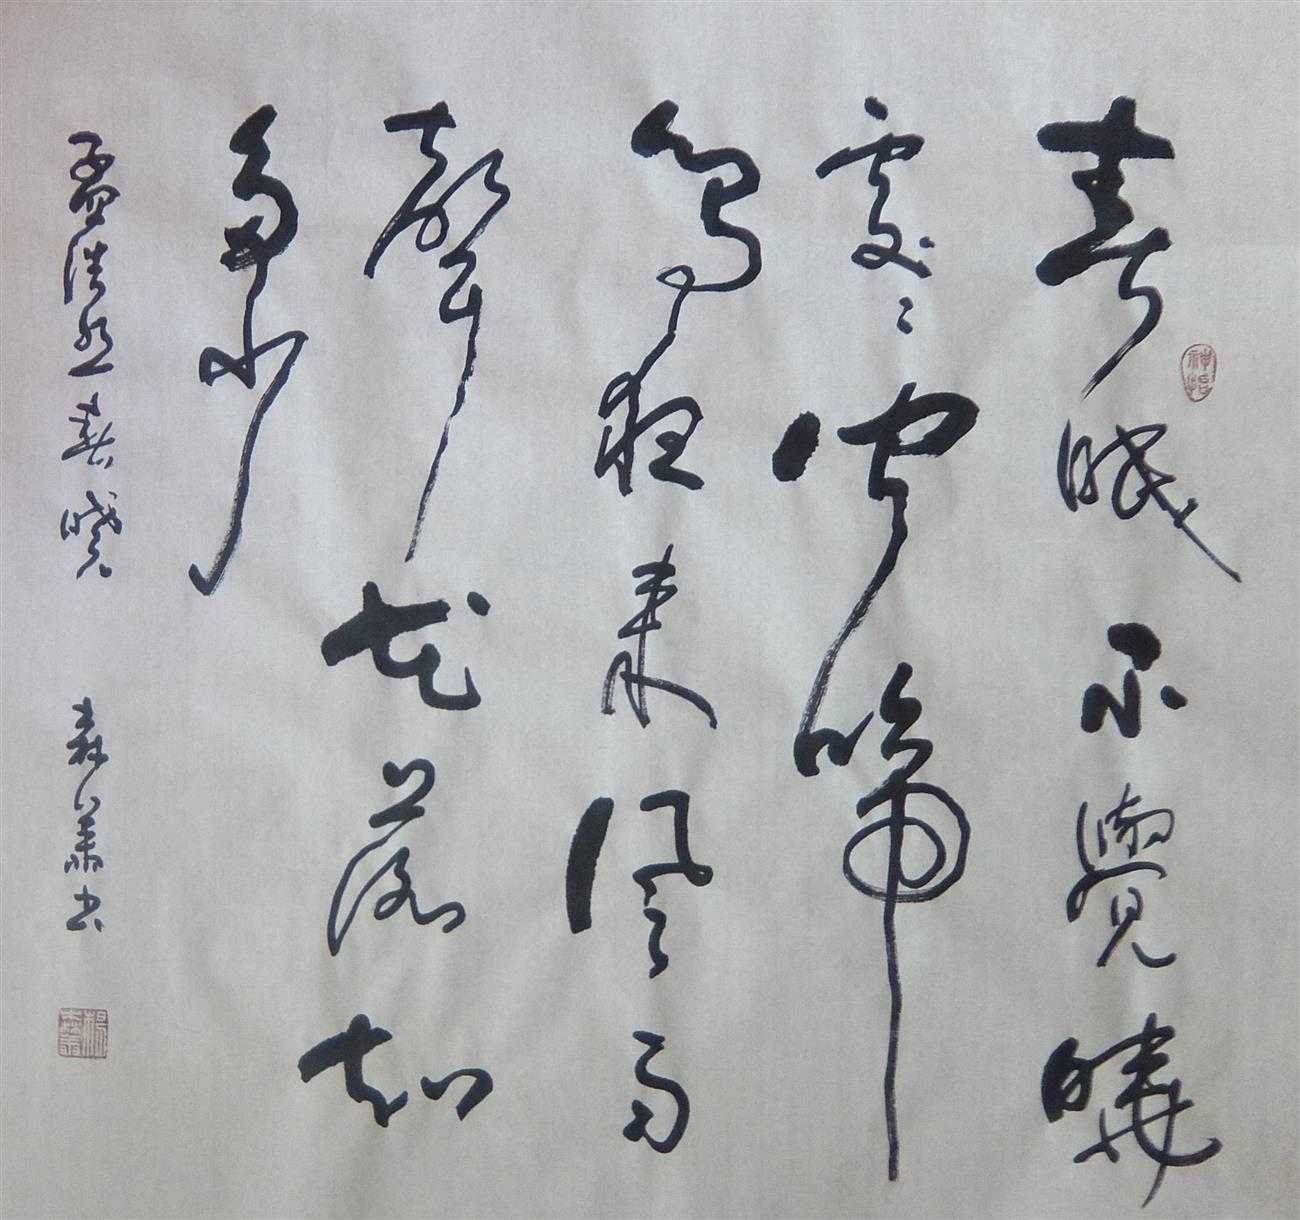 春眠不覺曉
處々聞啼
鳥夜来風雨
聲花落知
多少
孟浩然春曉 森 书